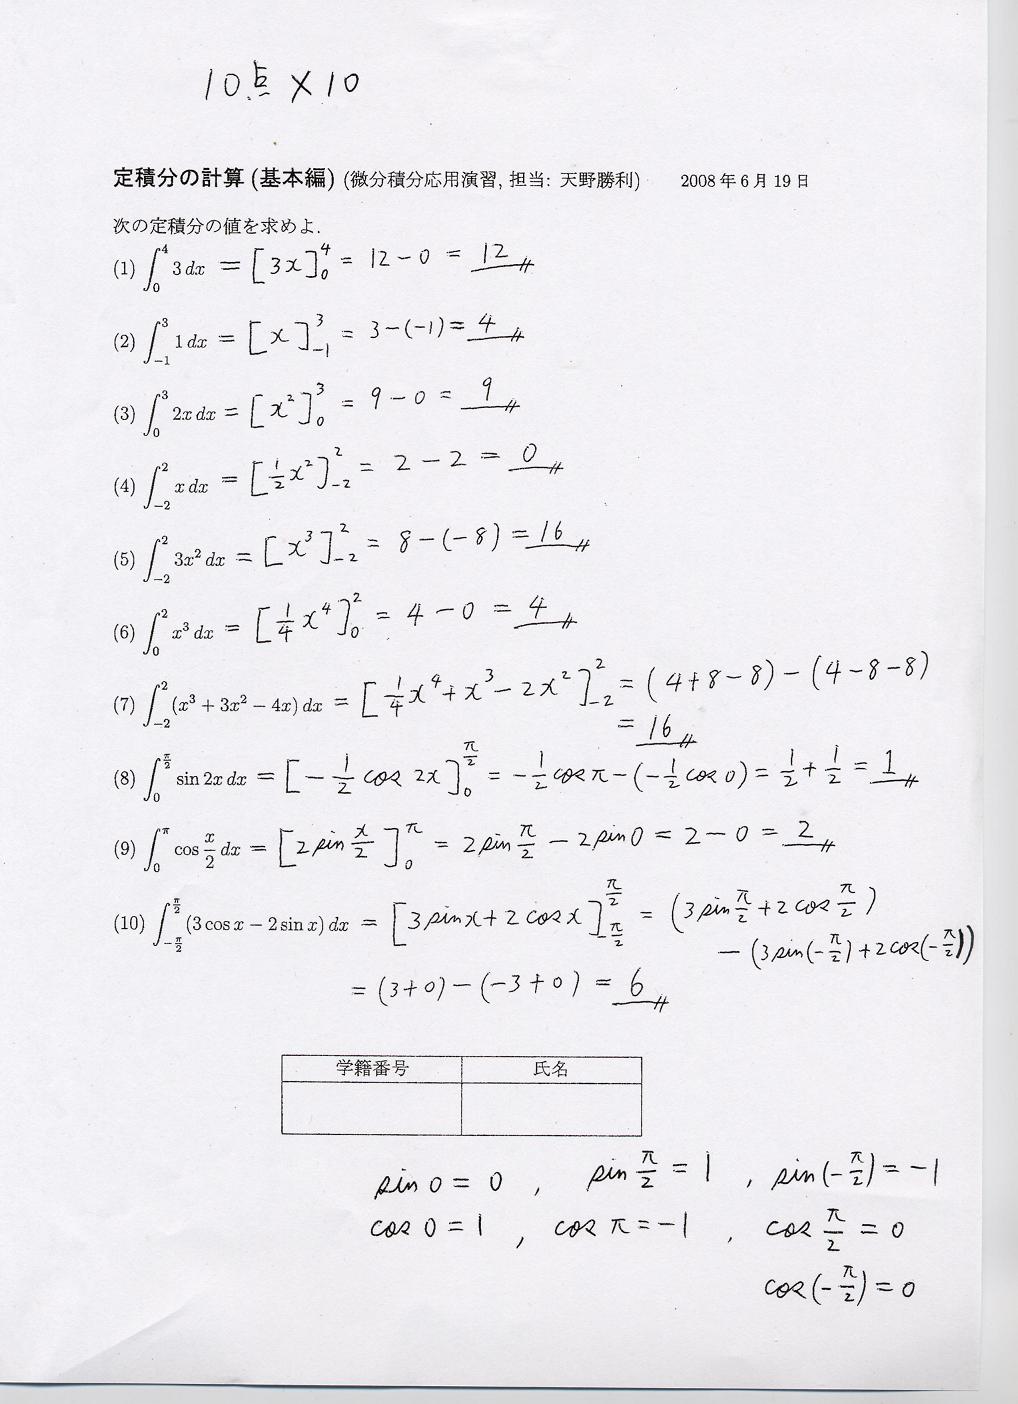 10点 × 10
定積分の計算 (基本編) (微分積分応用演習, 担当: 天野勝利) 2008年6月19日
次の定積分の値を求めよ.
(1) ∫_0^4 3 dx = [3x]_0^4 = 12 − 0 = 12
(2) ∫_{−1}^3 1 dx = [x]_{−1}^3 = 3 − (−1) = 4
(3) ∫_0^3 2x dx = [x²]_0^3 = 9 − 0 = 9
(4) ∫_{−2}^2 x dx = [1/2 x²]_{−2}^2 = 2 − 2 = 0
(5) ∫_{−2}^2 3x² dx = [x³]_{−2}^2 = 8 − (−8) = 16
(6) ∫_0^2 x³ dx = [1/4 x⁴]_0^2 = 4 − 0 = 4
(7) ∫_{−2}^2 (x³ + 3x² − 4x) dx = [1/4 x⁴ + x³ − 2x²]_{−2}^2 = (4+8−8) − (4−8−8)
= 16
(8) ∫_0^{π/2} sin 2x dx = [−1/2 cos 2x]_0^{π/2} = −1/2 cos π − (−1/2 cos 0) = 1/2 + 1/2 = 1
(9) ∫_0^π cos x/2 dx = [2 sin x/2]_0^π = 2 sin π/2 − 2 sin 0 = 2 − 0 = 2
(10) ∫_{−π/2}^{π/2} (3 cos x − 2 sin x) dx = [3 sin x + 2 cos x]_{−π/2}^{π/2} = (3 sin π/2 + 2 cos π/2)
− (3 sin(−π/2) + 2 cos(−π/2))
= (3+0) − (−3+0) = 6
学籍番号 氏名
sin 0 = 0 , sin π/2 = 1 , sin(−π/2) = −1
cos 0 = 1 , cos π = −1 , cos π/2 = 0
cos(−π/2) = 0